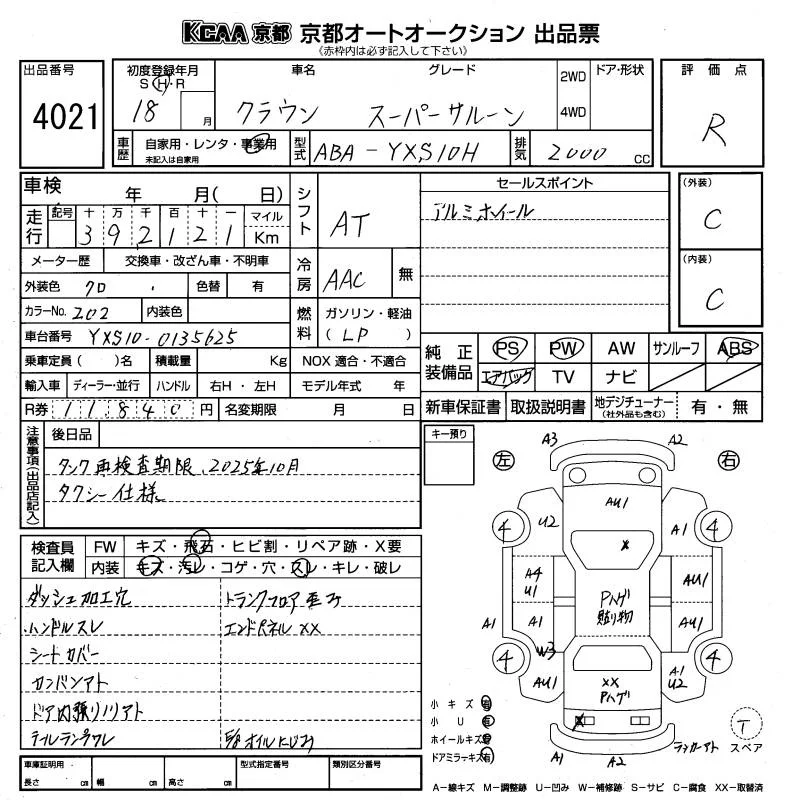 KCAA 京都 京都オートオークション 出品票
《赤枠内は必ず記入して下さい》
出品番号
4021
初度登録年月
S・H・R
18 月
車名
クラウン
グレード
スーパーサルーン
2WD
4WD
ドア・形状
評価点
R
車歴
自家用・レンタ・事業用
未記入は自家用
型式
ABA-YXS10H
排気
2000 CC
車検 年 月( 日)
走行
記号 十 万 千 百 十 一 マイル
3 9 2 1 2 1 Km
シフト
AT
セールスポイント
アルミホイール
(外装)
C
(内装)
C
メーター歴 交換車・改ざん車・不明車
外装色 クロ 色替 有
冷房
AAC 無
カラーNo. 202 内装色
燃料
ガソリン・軽油
( LP )
車台番号 YXS10-0135625
乗車定員( )名 積載量 Kg NOX 適合・不適合
輸入車 ディーラー・並行 ハンドル 右H・左H モデル年式 年
R券 11840 円 名変期限 月 日
純正装備品
PS PW AW サンルーフ ABS
エアバック TV ナビ
新車保証書 取扱説明書 地デジチューナー(社外品も含む) 有・無
注意事項(出品店記入)
後日品
タンク再検査期限、2025年10月
タクシー仕様
キー預り
検査員記入欄
FW キズ・飛石・ヒビ割・リペア跡・X要
内装 キズ・汚レ・コゲ・穴・スレ・キレ・破レ
ダッシュ加工穴
トランクフロア歪み
ハンドルスレ
エンドパネルXX
シートカバー
カンバンアト
ドア内張りノリアト
テールランプワレ
左 右
A3 A2
AU1
4 U2 A1 4
X
A4
U1
AU1
Pハゲ
貼り物
A1 A1 AU1
W3
4 4
AU1
XX
Pハゲ
A1
U2
X
A1 A2
小キズ 有
小U 有
ホイールキズ 有
ドアミラーキズ 有
T
スペア
車庫証明用
長さ cm 幅 cm 高さ cm
型式指定番号
類別区分番号
A−線キズ M−調整跡 U−凹み W−補修跡 S−サビ C−腐食 XX−取替済